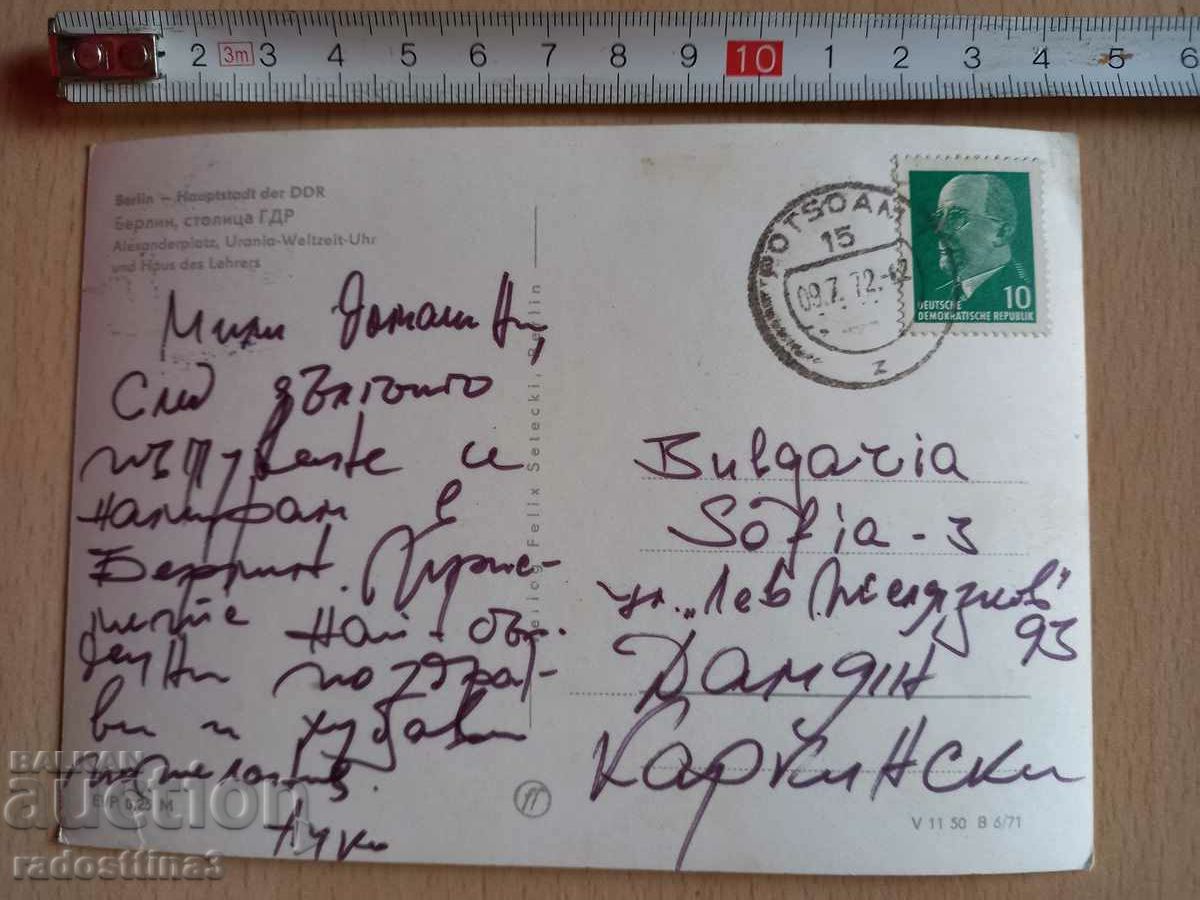 2 3m 3 4 5 6 7 8 9 10 1 2 3 4 5 6
Berlin – Hauptstadt der DDR
Берлин, столица ГДР
Alexanderplatz, Urania-Weltzeit-Uhr
und Haus des Lehrers
Мили домашни,
След дългото
пътуване се
намирам в
Берлин. Прие-
мете най-сър-
дечни поздра-
ви и хубави
пожелания.
EVP 0,25 M
Verlag Felix Setecki, Berlin
POTSDAM
15
09.7.72
z
DEUTSCHE
DEMOKRATISCHE REPUBLIK
10
Bulgaria
Sofia - 3
ул. „Лев Желязков"
93
Дамян
Каркински
V 11 50 B 6/71
BALKAN
auction
radosttina3